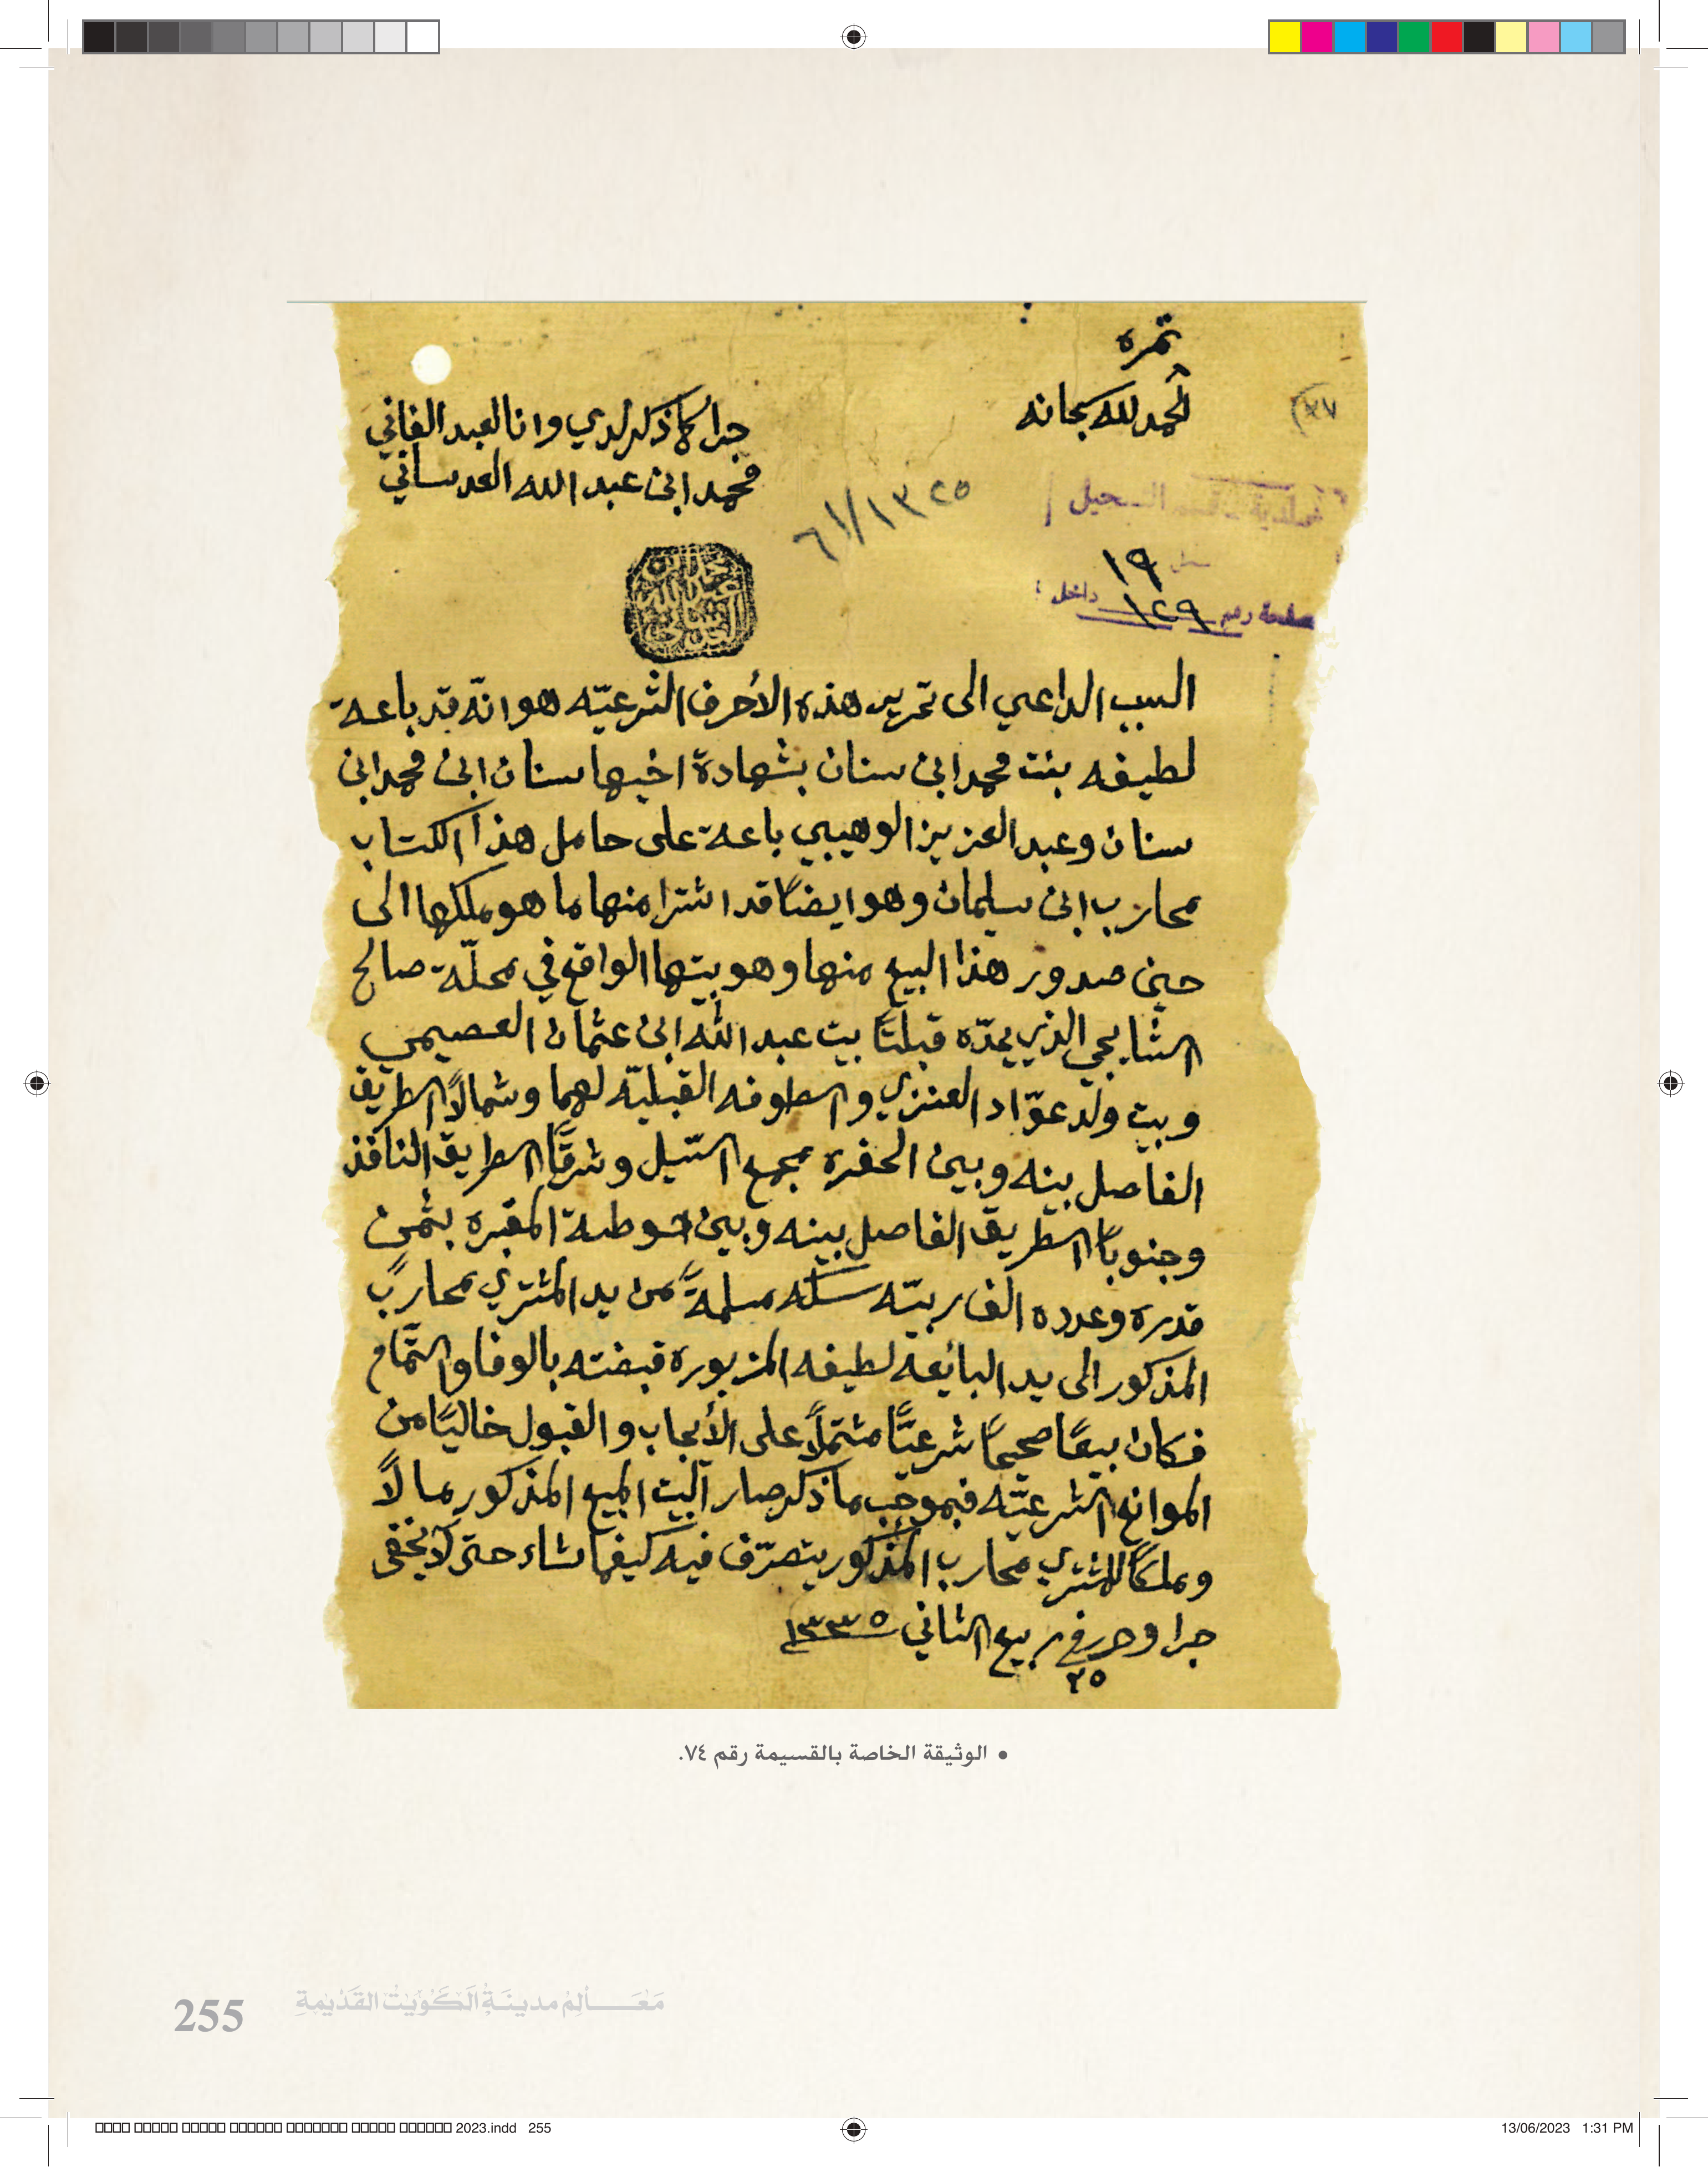 نمره
الحمد لله سبحانه
جرا كما ذكر لدي وانا العبد الفاني
محمد ابن عبد الله العدساني
١٩
صفحة رقم ١٢٩ داخل
السبب الداعي الى تحرير هذه الأحرف الشرعيّه هو انّه قد باعة
لطيفه بنت محمد ابن سنان بشهادة اخيها سنان ابن محمد ابن
سنان وعبد العزيز الوهيبي باعة على حامل هذا الكتاب
محارب ابن سليمان وهو ايضاً قد اشترا منها ما هو ملكها الى
حين صدور هذا البيع منها وهو بيتها الواقع في محلّة صالح
الشايجي الذي يحدّه قبلتاً بيت عبد الله ابن عثمان العصيمي
وبيت ولد عوّاد العنزي والسطوفه القبليّه لهما وشمالاً الطريق
الفاصل بينه وبين الحفره مجمع السّيل وشرقاً الطريق النافذ
وجنوباً الطريق الفاصل بينه وبين حوطة المقبره بثمن
قدره وعدده الف ربيّه سكّه مسلمةً من يد المشتري محارب
المذكور الى يد البائعه لطيفه المزبوره قبضته بالوفا والتّمام
فكان بيعاً صحيحاً شرعيّاً مشتملاً على الأيجاب والقبول خالياً من
الموانع الشرعيّه فبموجب ما ذكر صار البيت المبيع المذكور مالاً
وملكاً للمشتري محارب المذكور يتصرّف فيه كيفما شاء حتى لا يخفى
جرا وحرر في ربيع الثاني ١٣٣٥
٢٥
• الوثيقة الخاصة بالقسيمة رقم ٧٤.
255 مَعَـــالِمُ مدينَـةِ الكُوَيْتِ القَدِيمَةِ
2023.indd 255
13/06/2023 1:31 PM